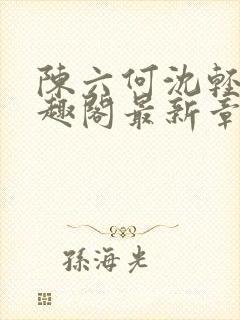 陳六何沈輕
趣閣最新章
孫海光